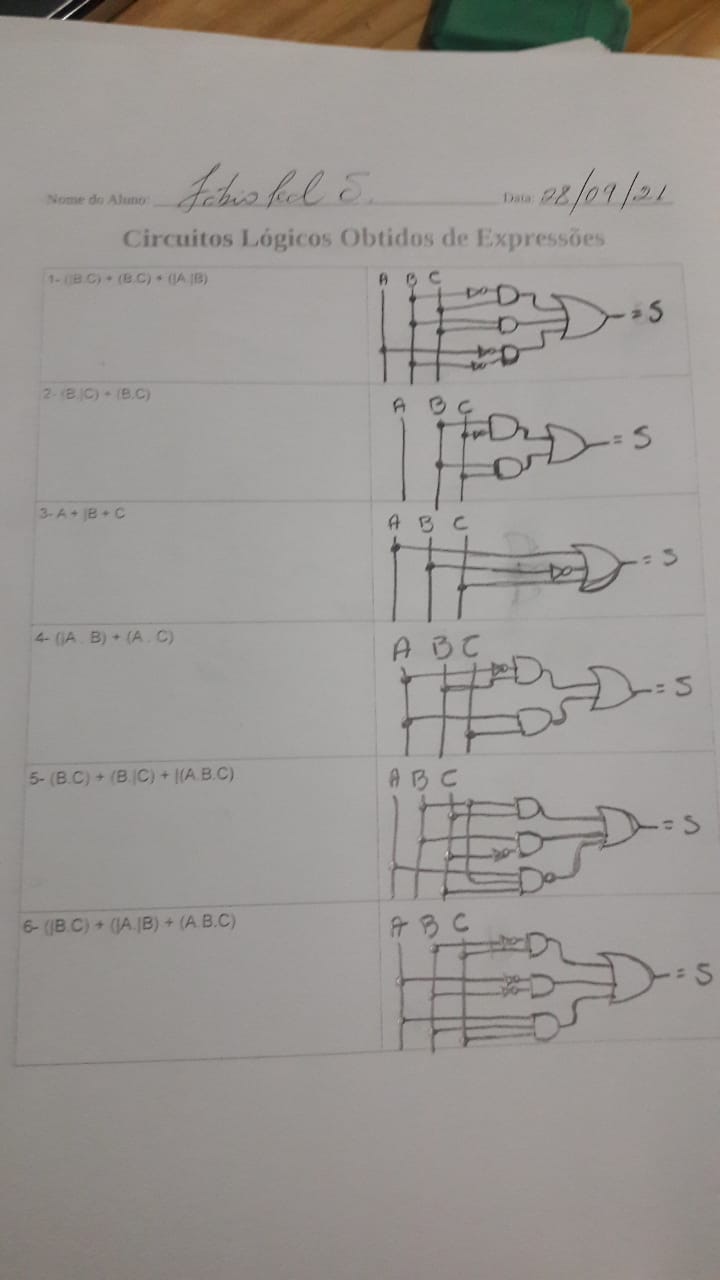 Nome do Aluno: Data: 28/09/21
Circuitos Lógicos Obtidos de Expressões
1- (|B.C) + (B.C) + (|A.|B)
A B C
= S
2- (B.|C) + (B.C)
A B C
= S
3- A + |B + C
A B C
= S
4- (|A . B) + (A . C)
A B C
= S
5- (B.C) + (B.|C) + |(A.B.C)
A B C
= S
6- (|B.C) + (|A.|B) + (A.B.C)
A B C
= S